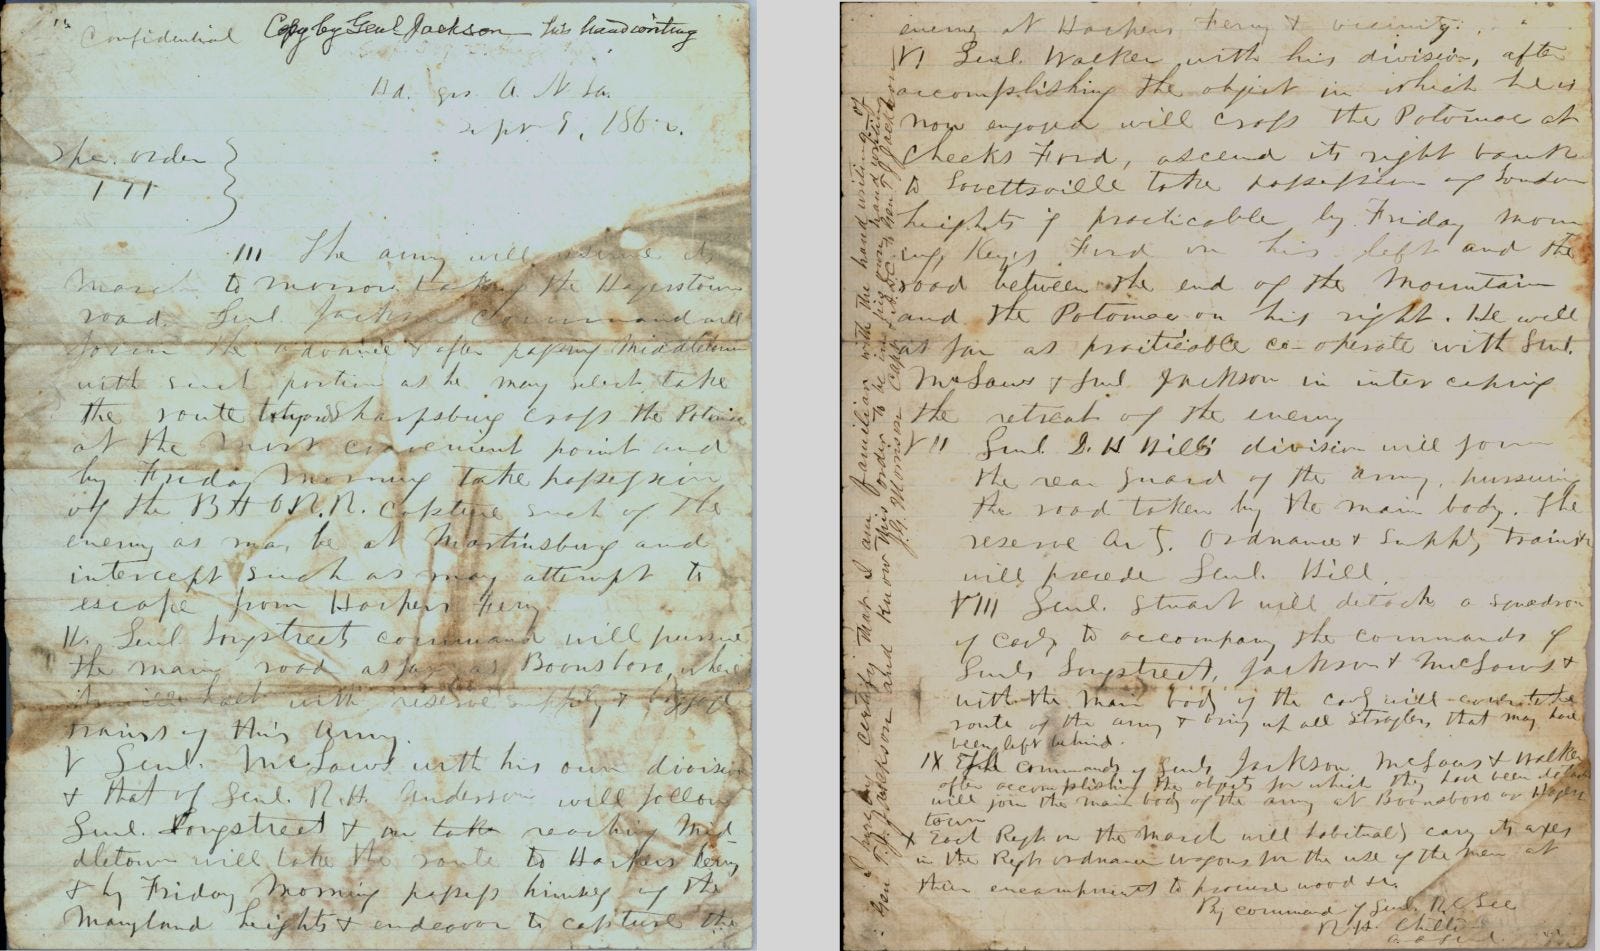 Confidential Copy by Genl Jackson his handwriting
Hd. qrs A. N Va.
Sept 9, 1862.
Spe. order
191
III The army will resume its
march to morrow taking the Hagerstown
road. Genl Jacksons command will
form the advance & after passing Middletown
with such portion as he may select take
the route toward Sharpsburg cross the Potomac
at the most convenient point and
by Friday Morning take possession
of the B & O R.R. capture such of the
enemy as may be at Martinsburg and
intercept such as may attempt to
escape from Harpers Ferry
IV. Genl Longstreets command will pursue
the main road as far as Boonsboro, where
it will halt with reserve supply & baggage
trains of this Army.
V Genl. McLaws with his own division
& that of Genl. R.H. Anderson will follow
Genl. Longstreet & on reaching Mid
dletown will take the route to Harpers Ferry
& by Friday Morning possess himself of the
Maryland heights & endeavor to capture the
enemy at Harpers Ferry & vicinity.
VI Genl. Walker with his division, after
accomplishing the object in which he is
now engaged will cross the Potomac at
Cheeks Ford, ascend its right bank
to Lovettsville take possession of Loudon
heights if practicable by Friday morn
ing, Keys Ford on his left and the
road between the end of the Mountain
and the Potomac on his right. He will
as far as practicable co-operate with Genl.
McLaws & Genl Jackson in intercepting
the retreat of the enemy
VII Genl. D. H Hill's division will form
the rear guard of the army, pursuing
the road taken by the main body. The
reserve Art. Ordnance & Supply trains &c
will precede Genl. Hill.
VIII Genl. Stuart will detach a squadron
of Cavly to accompany the commands of
Genls Longstreet, Jackson & McLaws &
with the main body of the cavly will cover the
route of the army & bring up all straglers that may have
been left behind.
IX The commands of Genls Jackson McLaws & Walker
after accomplishing the objects for which they have been detached
will join the main body of the army at Boonsboro or Hagers
town
X Each Regt on the march will habitually carry its axes
in the Regt ordnance wagons for the use of the men at
their encampments to procure wood &c.
By command of Genl. R E Lee
R. H. Chilton
A. A. Genl.
I hereby certify that I am familiar with the hand writing of
Gen T. J. Jackson and know this order to be in his own hand writing
J. G. Morrison Capt & A.D.C. Gen T J Jackson